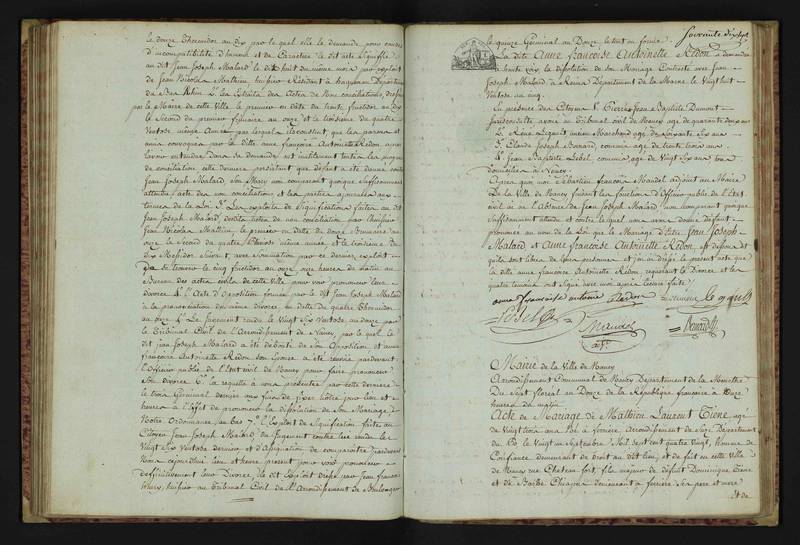 le douze Thermidor an dix par le quel elle le demande pour cause
d'incompatibilité d'humeur et de Caractère le dit acte signifié
au dit Jean Joseph Malard le dix huit du même mois par exploit
de Jean Nicolas Mathieu huissier Résidant à haguenau Département
du Bas Rhin 2° les Extraits des Actes de Non conciliations, dressés
par le Maire de cette Ville le premier en date du trente fructidor an dix
le Second du premier frimaire an onze et le troisième du quatre
Ventose même Année par lesquels il constat que les parens et
amis convoqués par la ditte anne françoise Antoinette Redon, pour
avoir entendu dans sa demande, ont inutilement tentés les moyens
de conciliation cette dernière persistant que défaut a été donné contre
Jean Joseph Malard non comparant quoique suffisamment
attendu, acte des non conciliations et les parties ajournées aux
termes de la Loi 3° Les exploits de Signification faites au dit
Jean Joseph Malard, desdits actes de non conciliation par l'huissier
Jean Nicolas Mathieu, le premier en datte du douze Brumaire an
onze le Second du quatre Nivose même année et le troisième du
dix Messidor Suivant, avec Sommation par ce dernier exploit
de se trouver le cinq fructidor an onze onze heures du matin au
Bureau des actes civils de cette Ville pour voir prononcer leur
divorce 4° l'Acte d'Opposition formée par le dit Jean Joseph Malard
à la prononciation du divorce, en datte du quatre Thermidor
an onze 5° Le Jugement rendu le Vingt Six Ventose an douze par
le Tribunal Civil de l'Arrondissement de Nancy par lequel le
dit jean Joseph Malard a été débouté de Son Opposition et anne
françoise Antoinette Redon Son Epouse a été renvoiée pardevant
l'Officier public de l'Etat civil de Nancy pour faire prononcer
Son divorce 6° la requette a nous présentée par cette dernière
le trois Germinal dernier aux fins de fixer Notre jour lieu et
heure à l'Effet de prononcer la dissolution de Son Mariage
Notre Ordonnance au bas 7° l'Exploit de Signification faite au
Citoyen Jean Joseph Malard du Jugement contre lui rendu le
Vingt Six Ventose dernier et d'assignation de comparoître pardevant
Nous cejourd'hui lieu et heure présent pour voir prononcer
deffinitivement leur Divorce, le dit Exploit dressé par Jean françois
huissier au Tribunal Civil de l'Arrondissement de
le quinze Germinal an Douze le tout en forme
la dite Anne françoise Antoinette Redon a demandé
la dissolution de son Mariage Contracté avec Jean
Joseph Malard à Reims Département de la Marne le Vingt huit
Ventose an cinq.
En présence des Citoyens 1° Pierre Jean Baptiste Dumont
Jurisconsulte avoué au Tribunal civil de Nancy age de quarante
2. René Marchand age de Soixante Six ans
3. Claude Joseph Bernard, commis age de trente trois ans
4. Jean Baptiste Lebel, commis, age de Vingt Six ans tous
domiciliés à Nancy.
Après quoi moi Sébastien françois Mandel adjoint au Maire
de la Ville de Nancy faisant les fonctions d'Officier public de l'Etat
civil ai en l'Absence de Jean Joseph Malard non comparant quoique
suffisamment attendu et contre lequel nous avons donné défaut
prononcé au nom de la Loi que le Mariage d'Entre Jean Joseph
Malard et Anne françoise Antoinette Redon est dissous et
qu'ils sont libres de leurs personnes et j'en ai dressé le présent acte que
la ditte anne françoise Antoinette Redon, requérant le Divorce et les
quatre témoins ont signé avec moi après lecture faite
anne françoise antoinette Redon
Lebel
Mandel
adjt
Bernard
Mairie de la Ville de Nancy
Arrondissement Communal de Nancy Département de la Meurthe
Du Sept floréal an Douze de la République française à Onze
heures du matin
Acte de Mariage de Mathieu Laurent Tione agé
de Vingt trois ans Né à ferrière Arrondissement de Suze Département
du Pô le Vingt un Septembre Mil Sept cent quatre Vingt, homme de
Confiance demeurant de droit au dit lieu, et de fait en cette Ville
de Nancy rue Chateau fort, fils majeur de défunt Dominique Tione
et de Barbe Chiapa demeurant à ferrière Ses père et mere
Et de